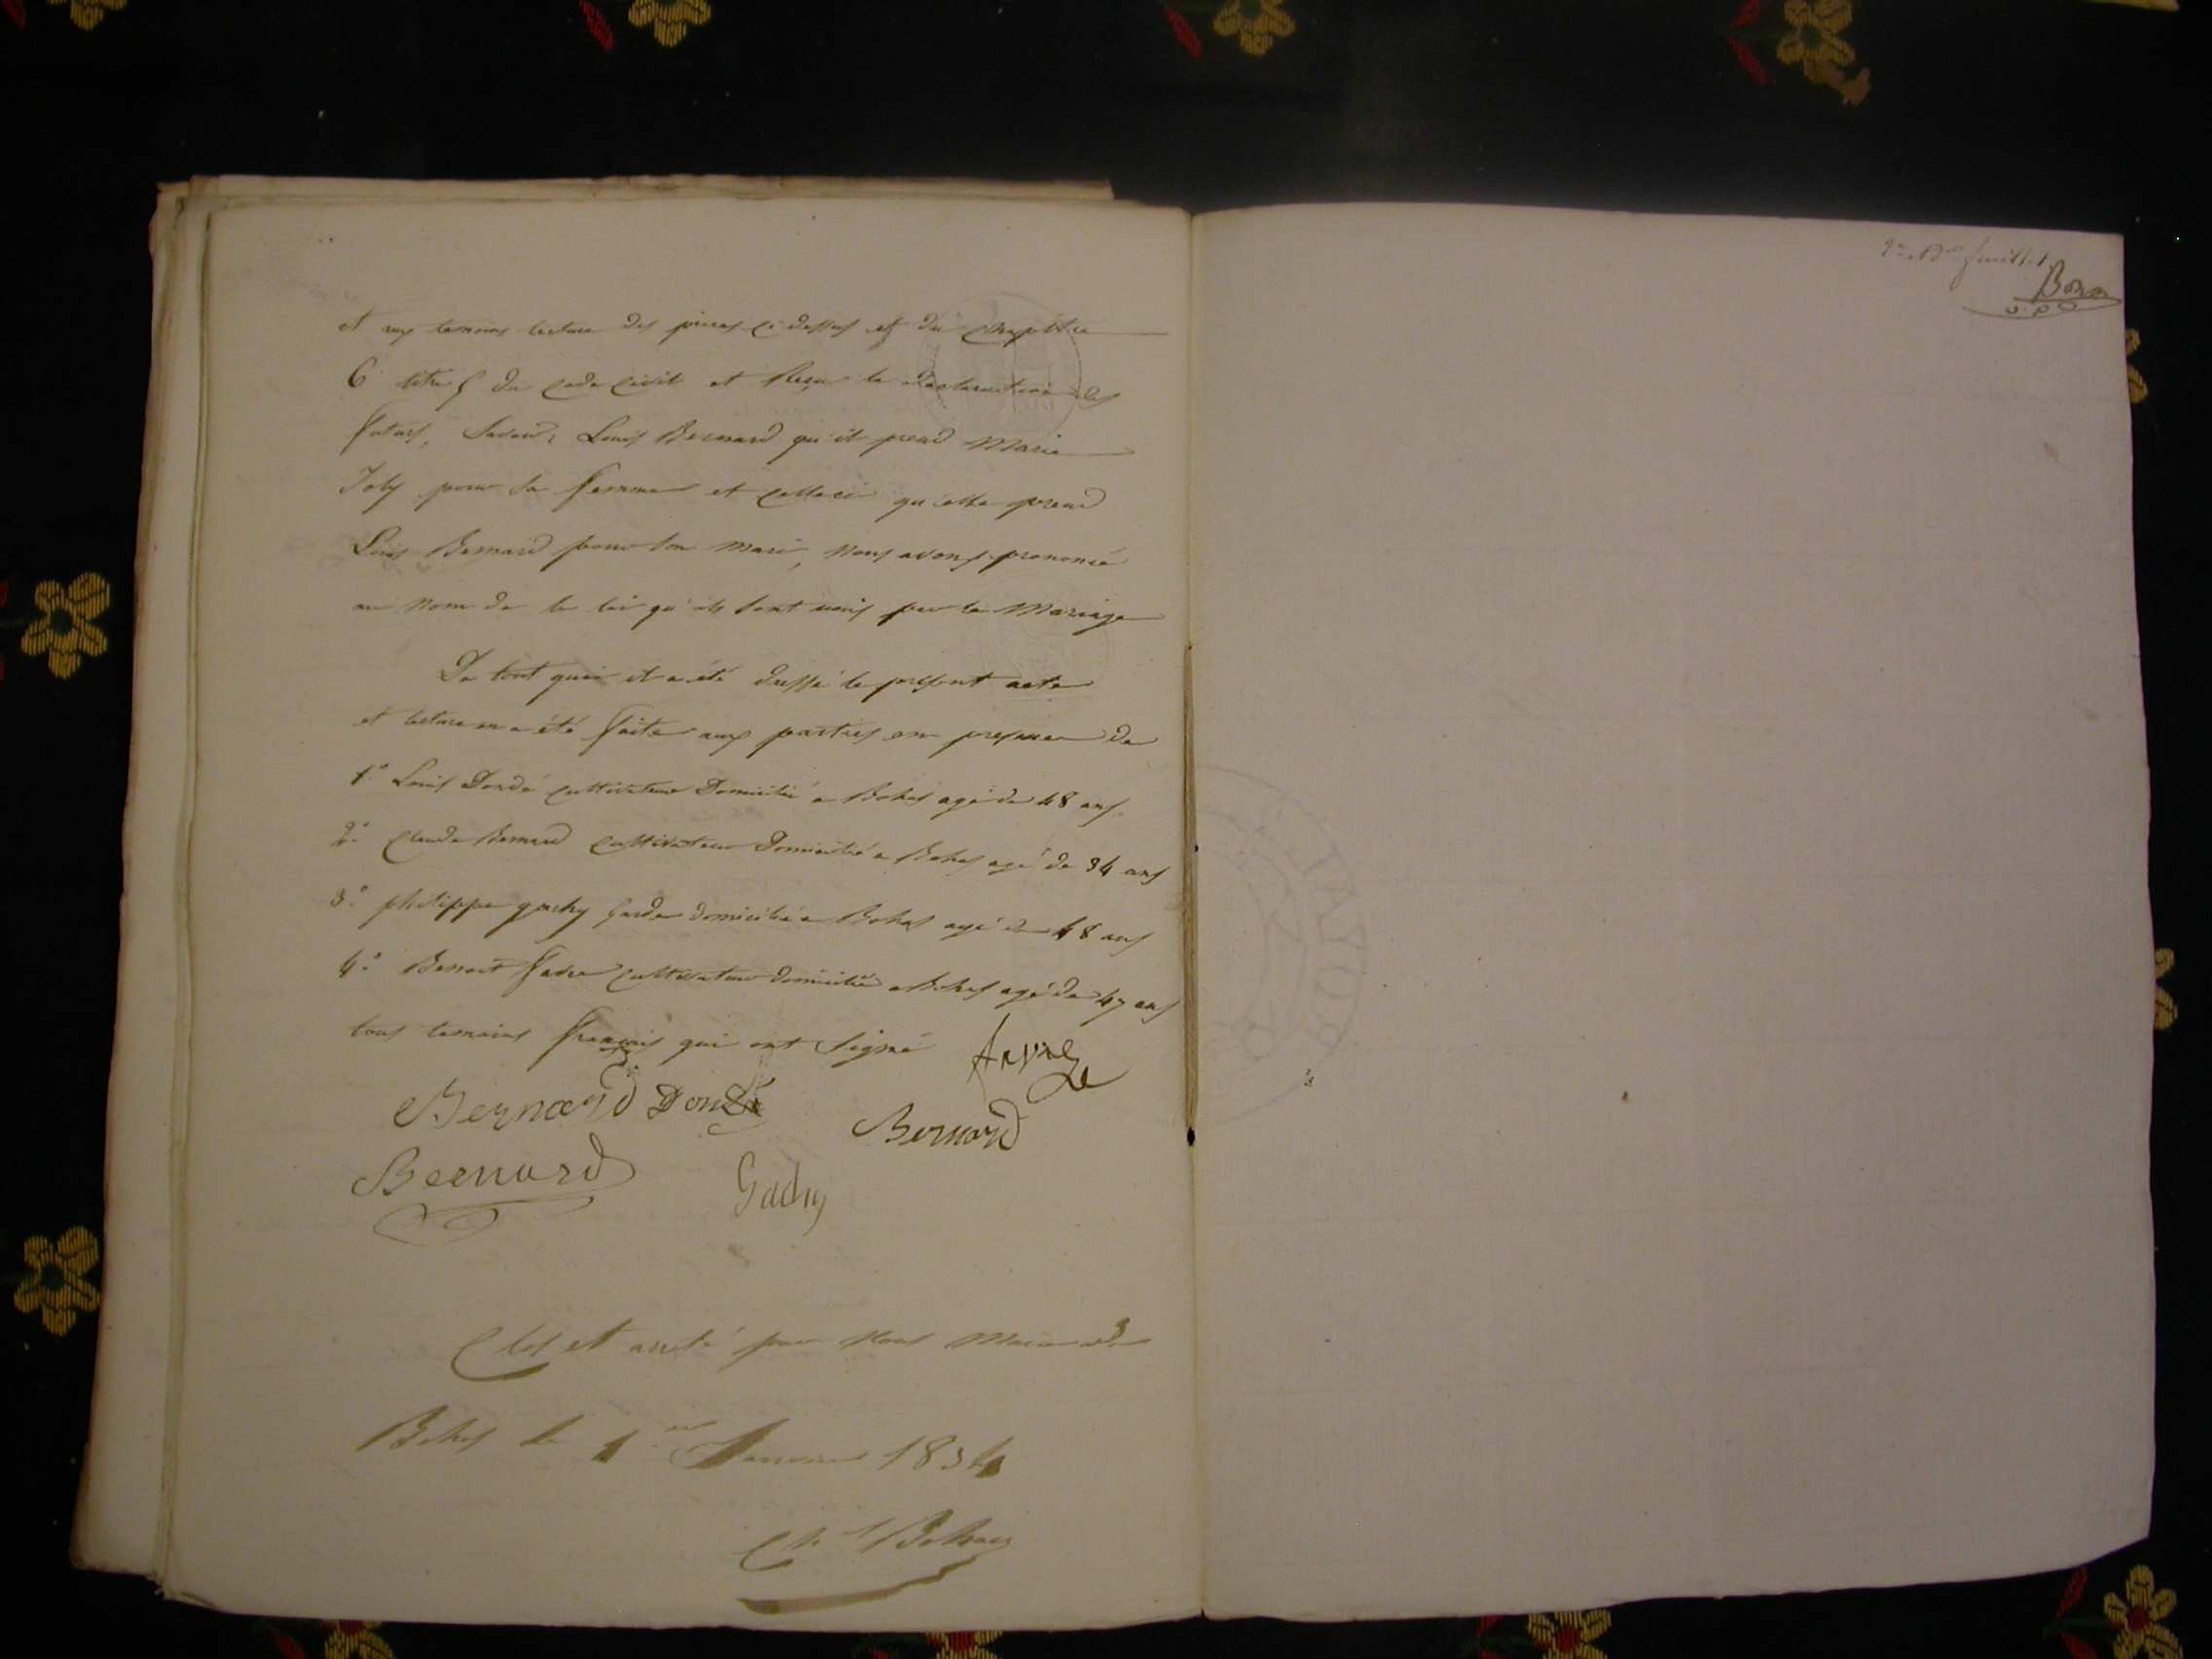 et aux temoins lecture des pieces ci dessus et du chapitre
6 titre 5 du code civil et Reçu la declaration des
futurs, Savoir, Louis Bernard qu'il prend Marie
Joly pour sa femme et celle ci qu'elle prend
Louis Bernard pour son mari, nous avons prononcé
au nom de la loi qu'ils sont unis par le Mariage
De tout quoi il a été dressé le present acte
et lecture en a été faite aux parties en presence de
1.° Louis Dondé cultivateur Domicilié a Bohas agé de 48 ans.
2.° Claude Bernard cultivateur Domicilié a Bohas agé de 34 ans
3.° philippe gachy garde domicilié a Bohas agé de 48 ans
4.° Benoit favre cultivateur domicilié a Bohas agé de 47 ans
tous temoins français qui ont signé
favre
Bernard Dondé
Bernard
Bernard
Gachy
Clos et arrêté par Nous Maire de
Bohas le 1.er Janvier 1834
Bohas
feuillet
ROYAL